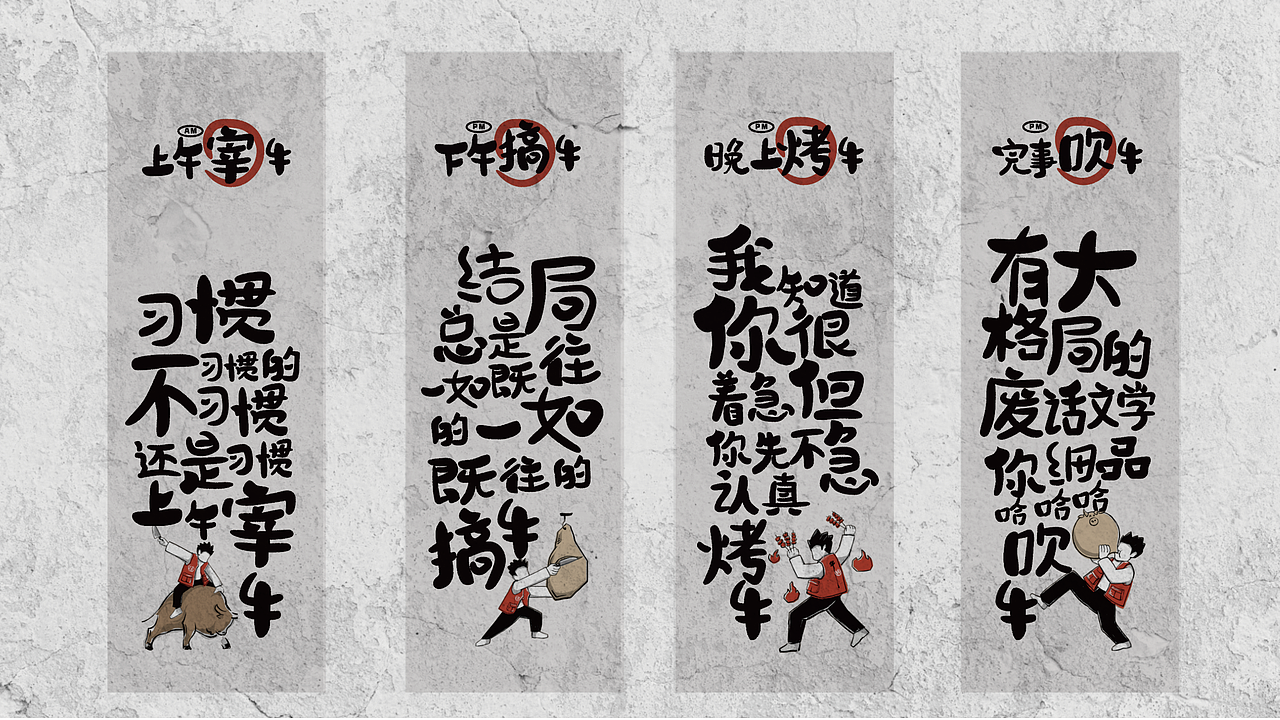 AM
上午宰牛
习惯
不习惯的
习惯
还是习惯
上午宰
牛
PM
下午搞牛
结局
总是往
一如既如
的一
既往的
搞牛
PM
晚上烤牛
我知道
你很
着急但
你先不急
认真
烤
牛
PM
完事吹牛
有大
格局的
废话文学
你细品
哈哈哈
吹
牛